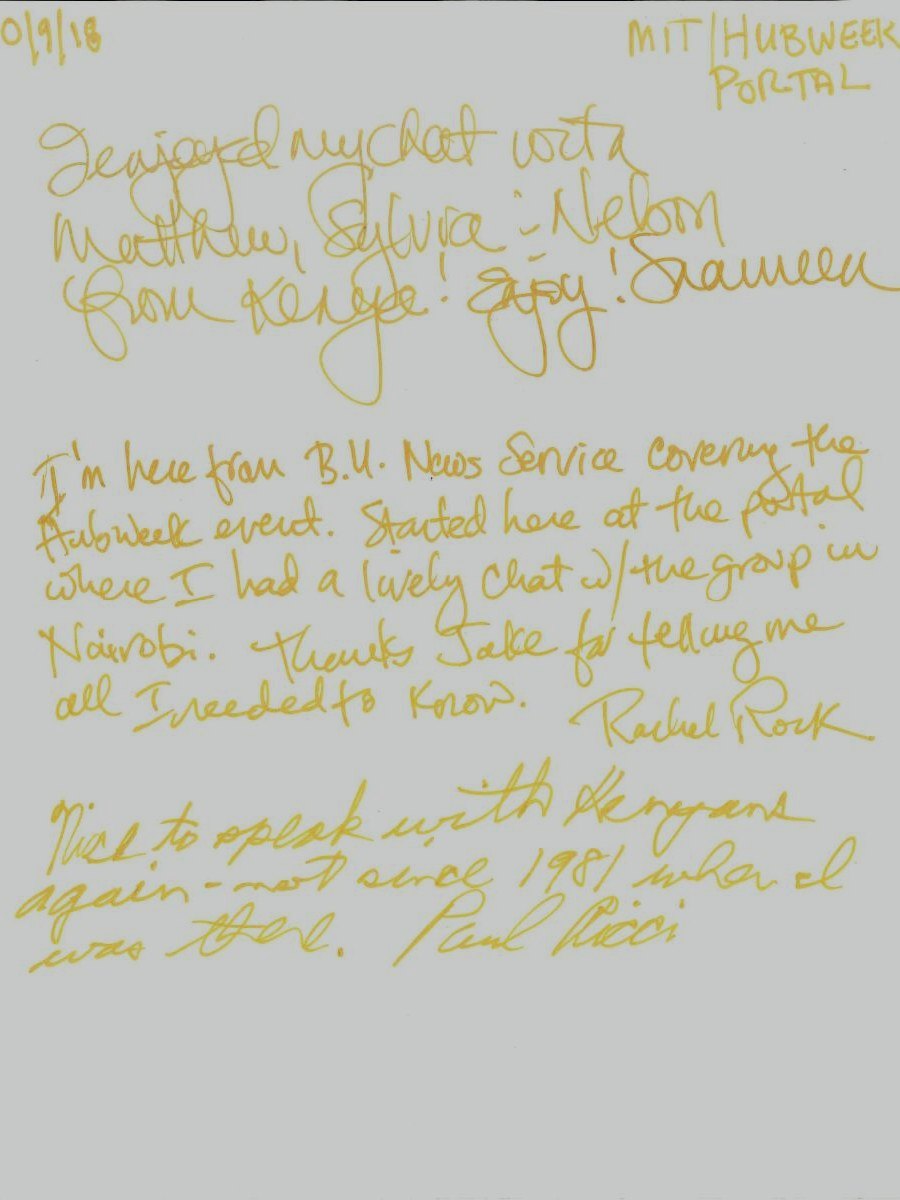 0/9/18
MIT/HUBWEEK
PORTAL
I enjoyed my chat with
Matthew, Sylvia & Nelson
from Kenya! Enjoy!
I'm here from B.U. News Service covering the
Hubweek event. Started here at the portal
where I had a lively chat w/ the group in
Nairobi. Thanks Jake for telling me
all I needed to know.
Rachel Rock
Nice to speak with Kenyans
again - not since 1981 when I
was there. Paul Ricci